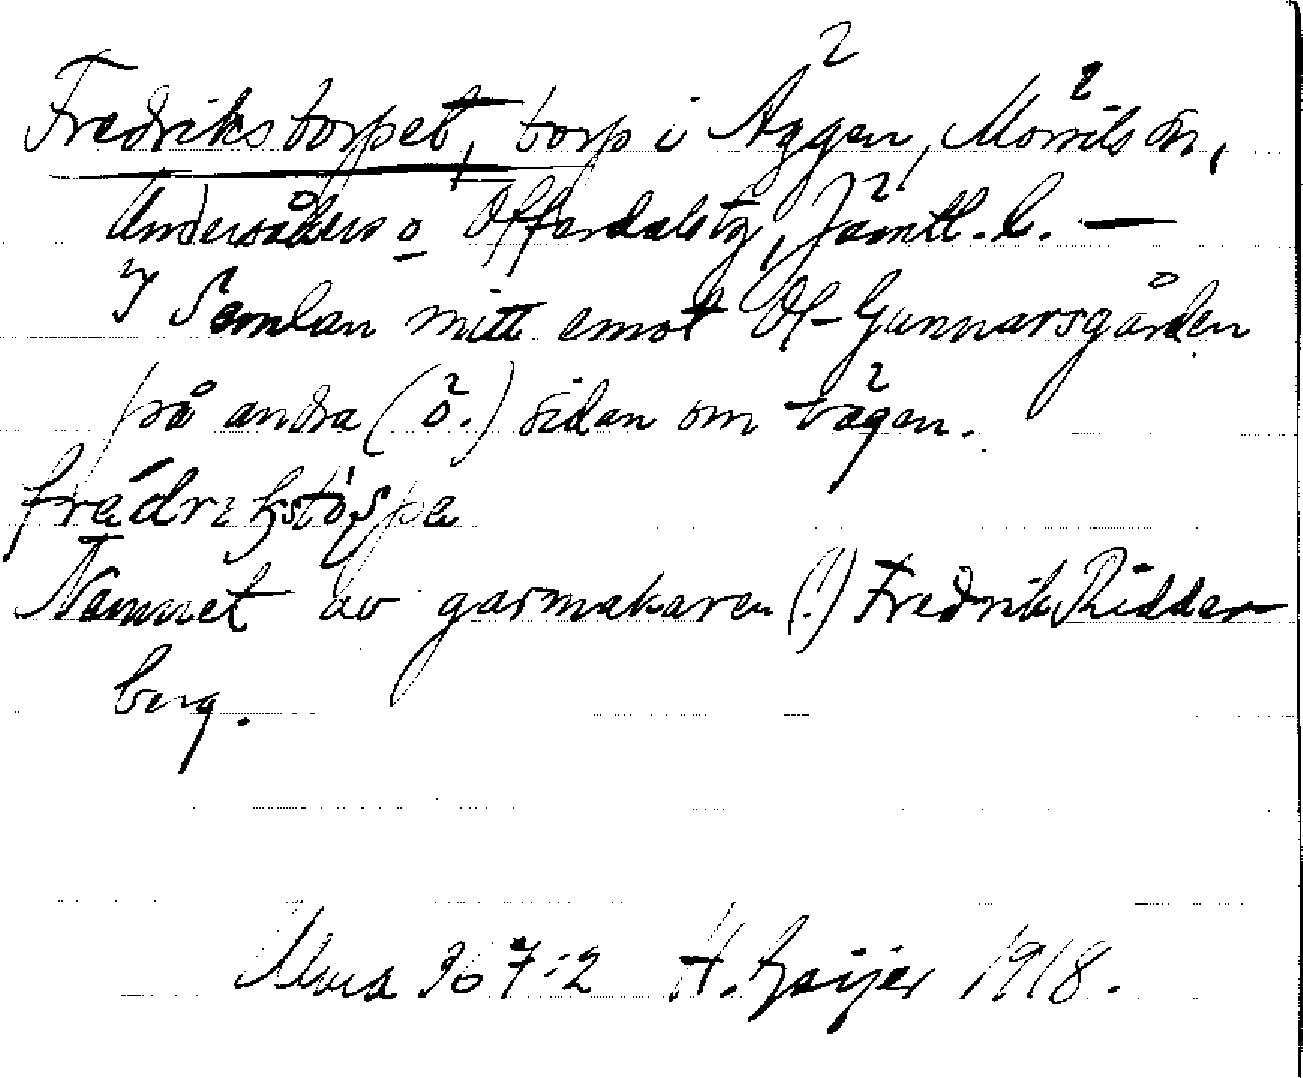 Fredrikstorpet, torp i Äggen, Mörsils sn,
Undersåkers o Offerdals tg, Jämtl. l. —
I Semlan mitt emot Ol-Gunnarsgården
på andra (ö.) sidan om vägen.
Namnet av garmakaren (!) Fredrik Ridder
berg.
367:2 H. Geijer 1918.